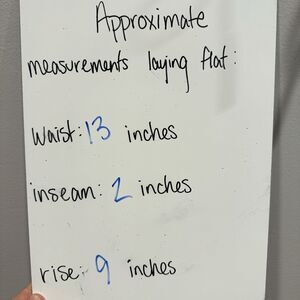 Approximate
measurements laying flat:
waist: 13 inches
inseam: 2 inches
rise: 9 inches